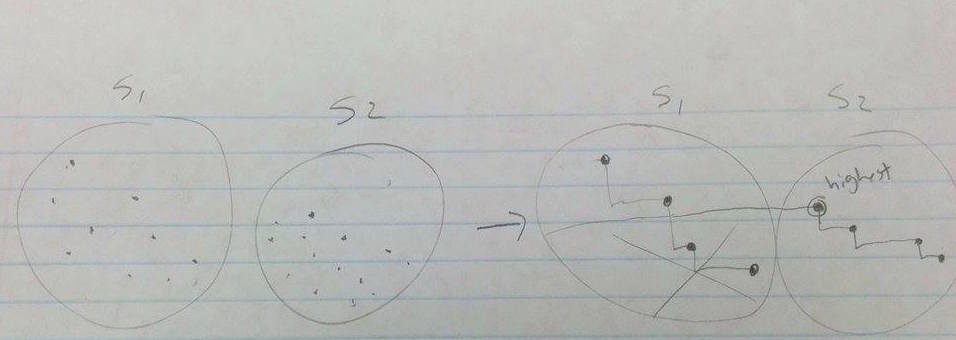 S1 S2 → S1 S2
highest